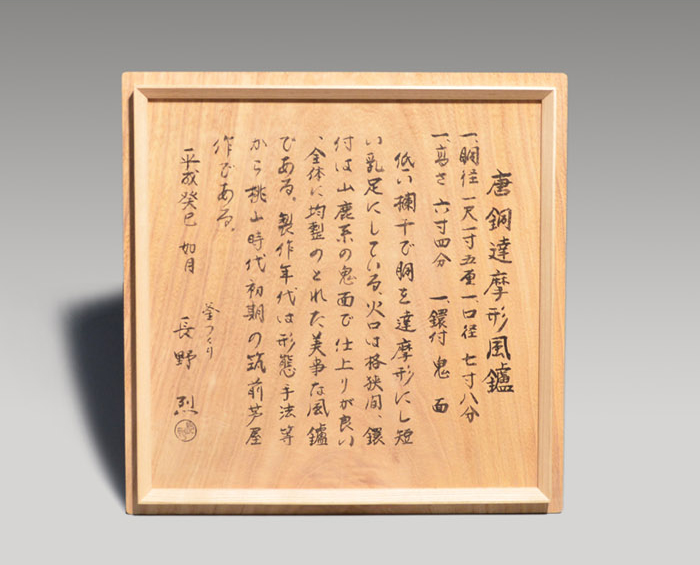 唐銅達摩形風鑪
一、胴径 一尺一寸五厘 一、口径 七寸八分
一、高さ 六寸四分 一、鐶付 鬼面
低い欄干で胴を達摩形にし短
い乳足にしている、火口は格狭間、鐶
付は山鹿系の鬼面で仕上りが良い
、全体に均整のとれた美事な風鑪
である。製作年代は形態手法等
から桃山時代初期の筑前芦屋
作である。
平成癸巳 如月
釜つくり
長野 烈